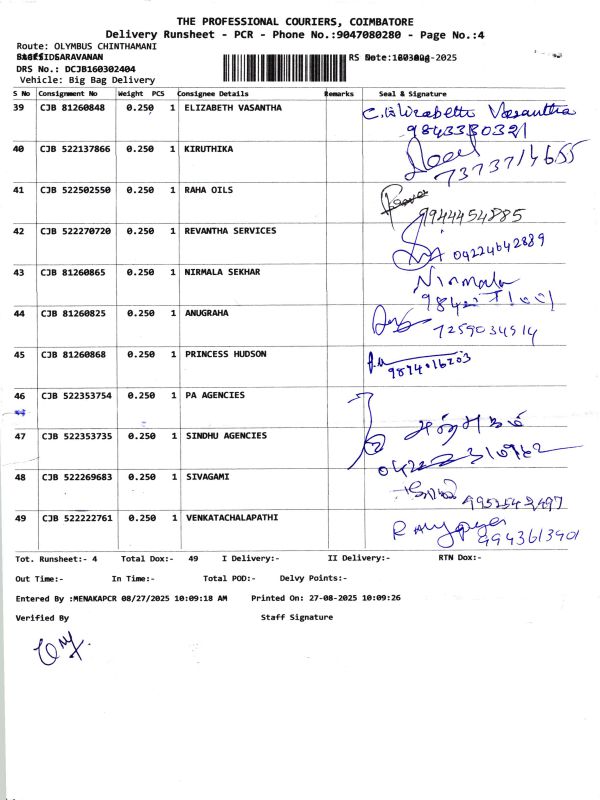 THE PROFESSIONAL COURIERS, COIMBATORE
Delivery Runsheet - PCR - Phone No.:9047080280 - Page No.:4
Route: OLYMBUS CHINTHAMANI
SARAVANAN RS -2025
DRS No.: DCJB160302404
Vehicle: Big Bag Delivery
S No Consignment No Weight PCS Consignee Details Remarks Seal & Signature
39 CJB 81260848 0.250 1 ELIZABETH VASANTHA C. Elizabeth Vasantha
40 CJB 522137866 0.250 1 KIRUTHIKA 7373714655
41 CJB 522502550 0.250 1 RAHA OILS 9944454885
42 CJB 522270720 0.250 1 REVANTHA SERVICES 04224642889
43 CJB 81260865 0.250 1 NIRMALA SEKHAR Nirmala
44 CJB 81260825 0.250 1 ANUGRAHA 7259034514
45 CJB 81260868 0.250 1 PRINCESS HUDSON 9874016203
46 CJB 522353754 0.250 1 PA AGENCIES
47 CJB 522353735 0.250 1 SINDHU AGENCIES
48 CJB 522269683 0.250 1 SIVAGAMI
49 CJB 522222761 0.250 1 VENKATACHALAPATHI 9943613901
Tot. Runsheet:- 4 Total Dox:- 49 I Delivery:- II Delivery:- RTN Dox:-
Out Time:- In Time:- Total POD:- Delvy Points:-
Entered By :MENAKAPCR 08/27/2025 10:09:18 AM Printed On: 27-08-2025 10:09:26
Verified By Staff Signature